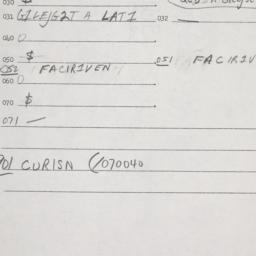 030 $
031 GILEJGIT A LATI 032 —
040 0
050 $
052 FACIRIVEN 051 FACIRIV
060 0
070 $
071 —
01 CURISN (/070040